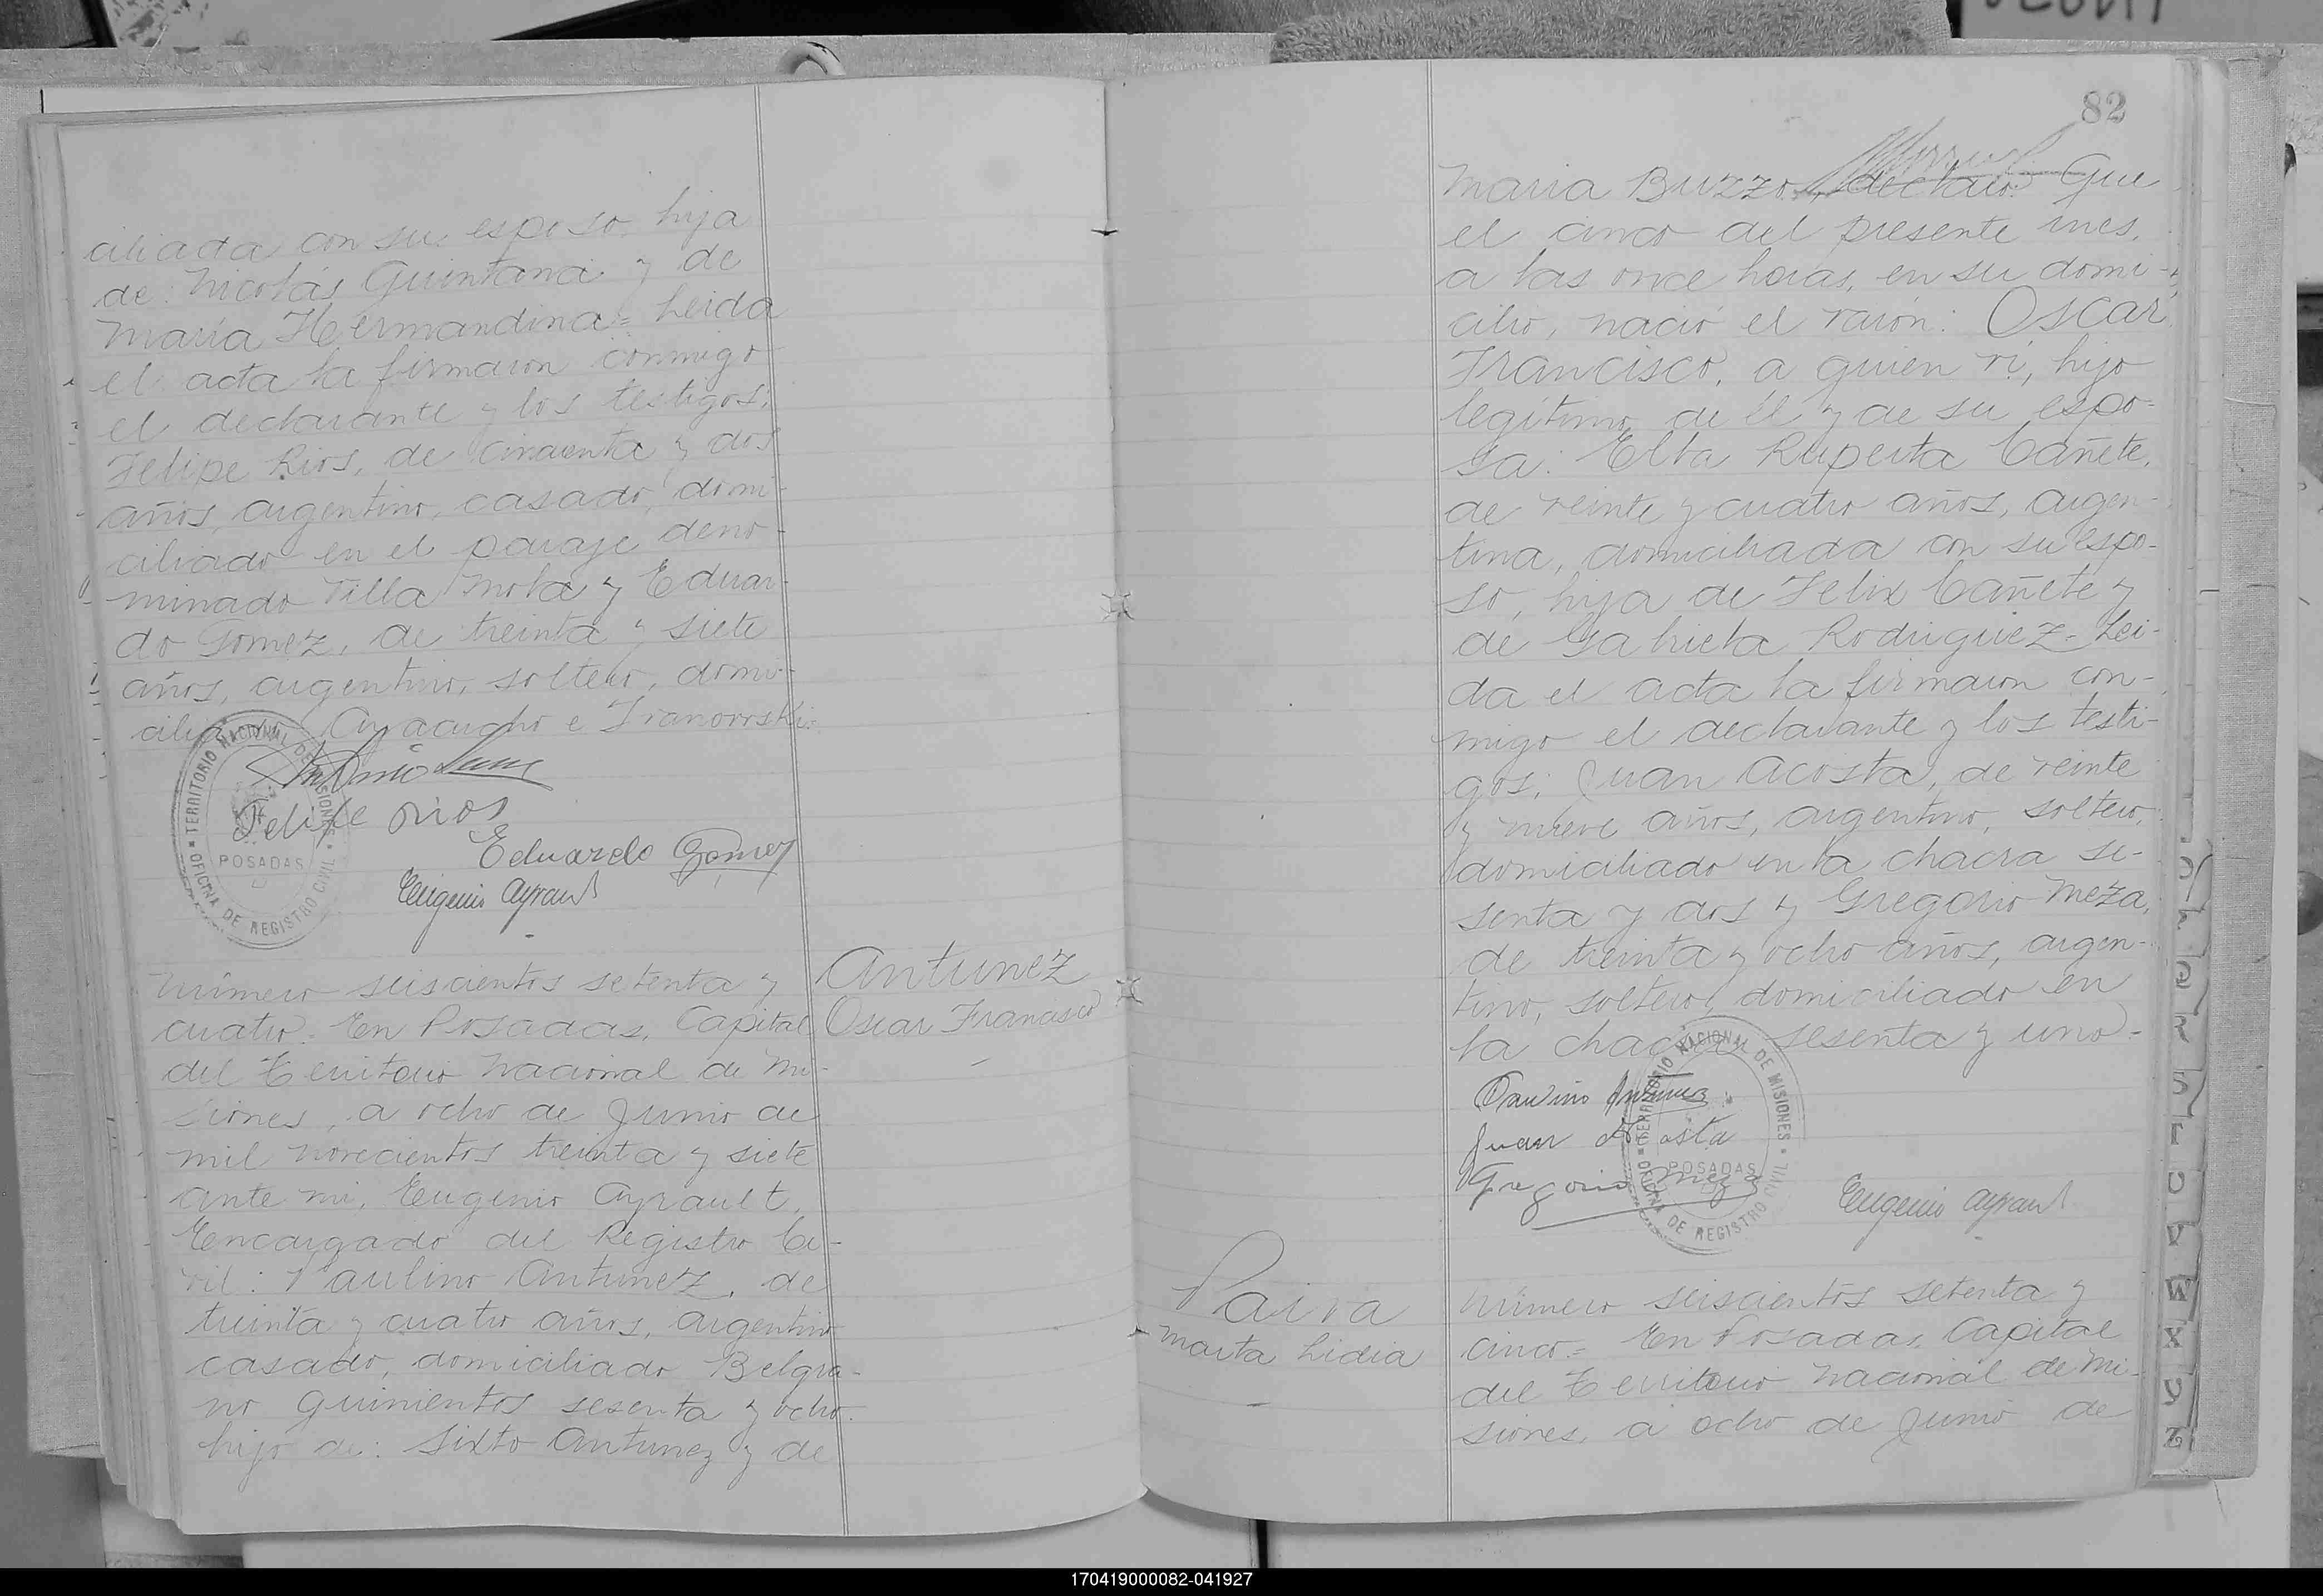 ciliada con su esposo, hija
de: Nicolás Quintana y de
María Hermandina= Leida
el acta la firmaron conmigo
el declarante y los testigos:
Felipe Rios, de cincuenta y dos
años, argentino, casado, domi-
ciliado en el paraje deno-
minado Villa Mola y Eduar-
do Gomez, de treinta y siete
años, argentino, soltero, domi-
cilia Ayacucho e Ivanowski=
TERRITORIO NACIONAL DE MISIONES
POSADAS
OFICINA DE REGISTRO CIVIL
Antonio
Felipe Rios
Eduardo Gomez
Eugenio Ayrault
Número seiscientos setenta y
cuatro= En Posadas, Capital
del Territorio Nacional de Mi-
siones, a ocho de Junio de
mil novecientos treinta y siete
ante mi, Eugenio Ayrault,
Encargado del Registro Ci-
vil: Paulino Antunez, de
treinta y cuatro años, argentino
casado, domiciliado Belgra-
no quinientos sesenta y ocho,
hijo de: Sixto Antunez y de
Antunez
Oscar Francisco
82
María Buzzo, declaró: Que
el cinco del presente mes,
a las once horas, en su domi-
cilio, nació el varón: Oscar
Francisco, a quien vi, hijo
legítimo de él y de su espo-
sa: Elba Ruperta Cañete,
de veinte y cuatro años, argen-
tina, domiciliada con su espo-
so, hija de Felix Cañete y
de Gabriela Rodriguez= Lei-
da el acta la firmaron con-
migo el declarante y los testi-
gos: Juan Acosta, de veinte
y nueve años, argentino, soltero,
domiciliado en la chacra se-
senta y dos y Gregorio Meza,
de treinta y ocho años, argen-
tino, soltero, domiciliado en
la chacra sesenta y uno=
Paulino Antunez
Juan Acosta
Gregorio Meza
Eugenio Ayrault
TERRITORIO NACIONAL DE MISIONES
POSADAS
OFICINA DE REGISTRO CIVIL
Paiva
Marta Lidia
Número seiscientos setenta y
cinco= En Posadas, Capital
del Territorio Nacional de Mi-
siones, a ocho de Junio de
W
X
Y
Z
170419000082-041927